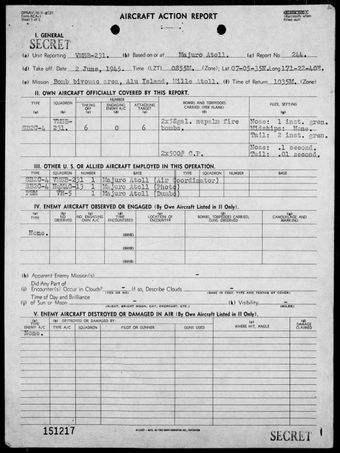 AIRCRAFT ACTION REPORT
I. GENERAL
SECRET
(a) Unit Reporting VMSB-231. (b) Based on or at Majuro Atoll. (c) Report No 244.
(d) Take off: Date 2 June, 1945. Time (LZT) 0855M. (Zone); Lat. 07-05-35N. Long 171-22-40E.
(e) Mission Bomb bivouac area, Alu Island, Mille Atoll. (f) Time of Return 1035M. (Zone)
II. OWN AIRCRAFT OFFICIALLY COVERED BY THIS REPORT.
TYPE SQUADRON NUMBER BOMBS AND TORPEDOES CARRIED (PER PLANE) FUZE, SETTING
TAKING OFF ENGAGING ENEMY A/C ATTACKING TARGET
VMSB- 2x58gal. napalm fire Nose: 1 inst. gren.
SB2C-4 231. 6 0 6 bombs. Midships: None.
Tail: 2 inst. gren.
Nose: .1 second.
2x500# G.P. Tail: .01 second.
III. OTHER U. S. OR ALLIED AIRCRAFT EMPLOYED IN THIS OPERATION.
TYPE SQUADRON NUMBER BASE TYPE SQUADRON NUMBER BASE
SB2C-4 VMSB-231 1 Majuro Atoll (Air Coordinator)
1 Majuro Atoll (Photo)
PBM 1 Majuro Atoll (Dumbo)
IV. ENEMY AIRCRAFT OBSERVED OR ENGAGED (By Own Aircraft Listed in II Only).
None.
(ZONE)
(ZONE)
(ZONE)
(h) Apparent Enemy Mission(s)
(i) Did Any Part of Encounter(s) Occur in Clouds? If so, Describe Clouds
(YES OR NO)
Time of Day and Brilliance
(j) of Sun or Moon (k) Visibility
(NIGHT, BRIGHT MOON, DAY, OVERCAST, ETC.)
V. ENEMY AIRCRAFT DESTROYED OR DAMAGED IN AIR (By Own Aircraft Listed in II Only).
TYPE ENEMY A/C DESTROYED OR DAMAGED BY: WHERE HIT, ANGLE DAMAGE CLAIMED
TYPE A/C SQUADRON PILOT OR GUNNER GUNS USED
None.
151217
SECRET